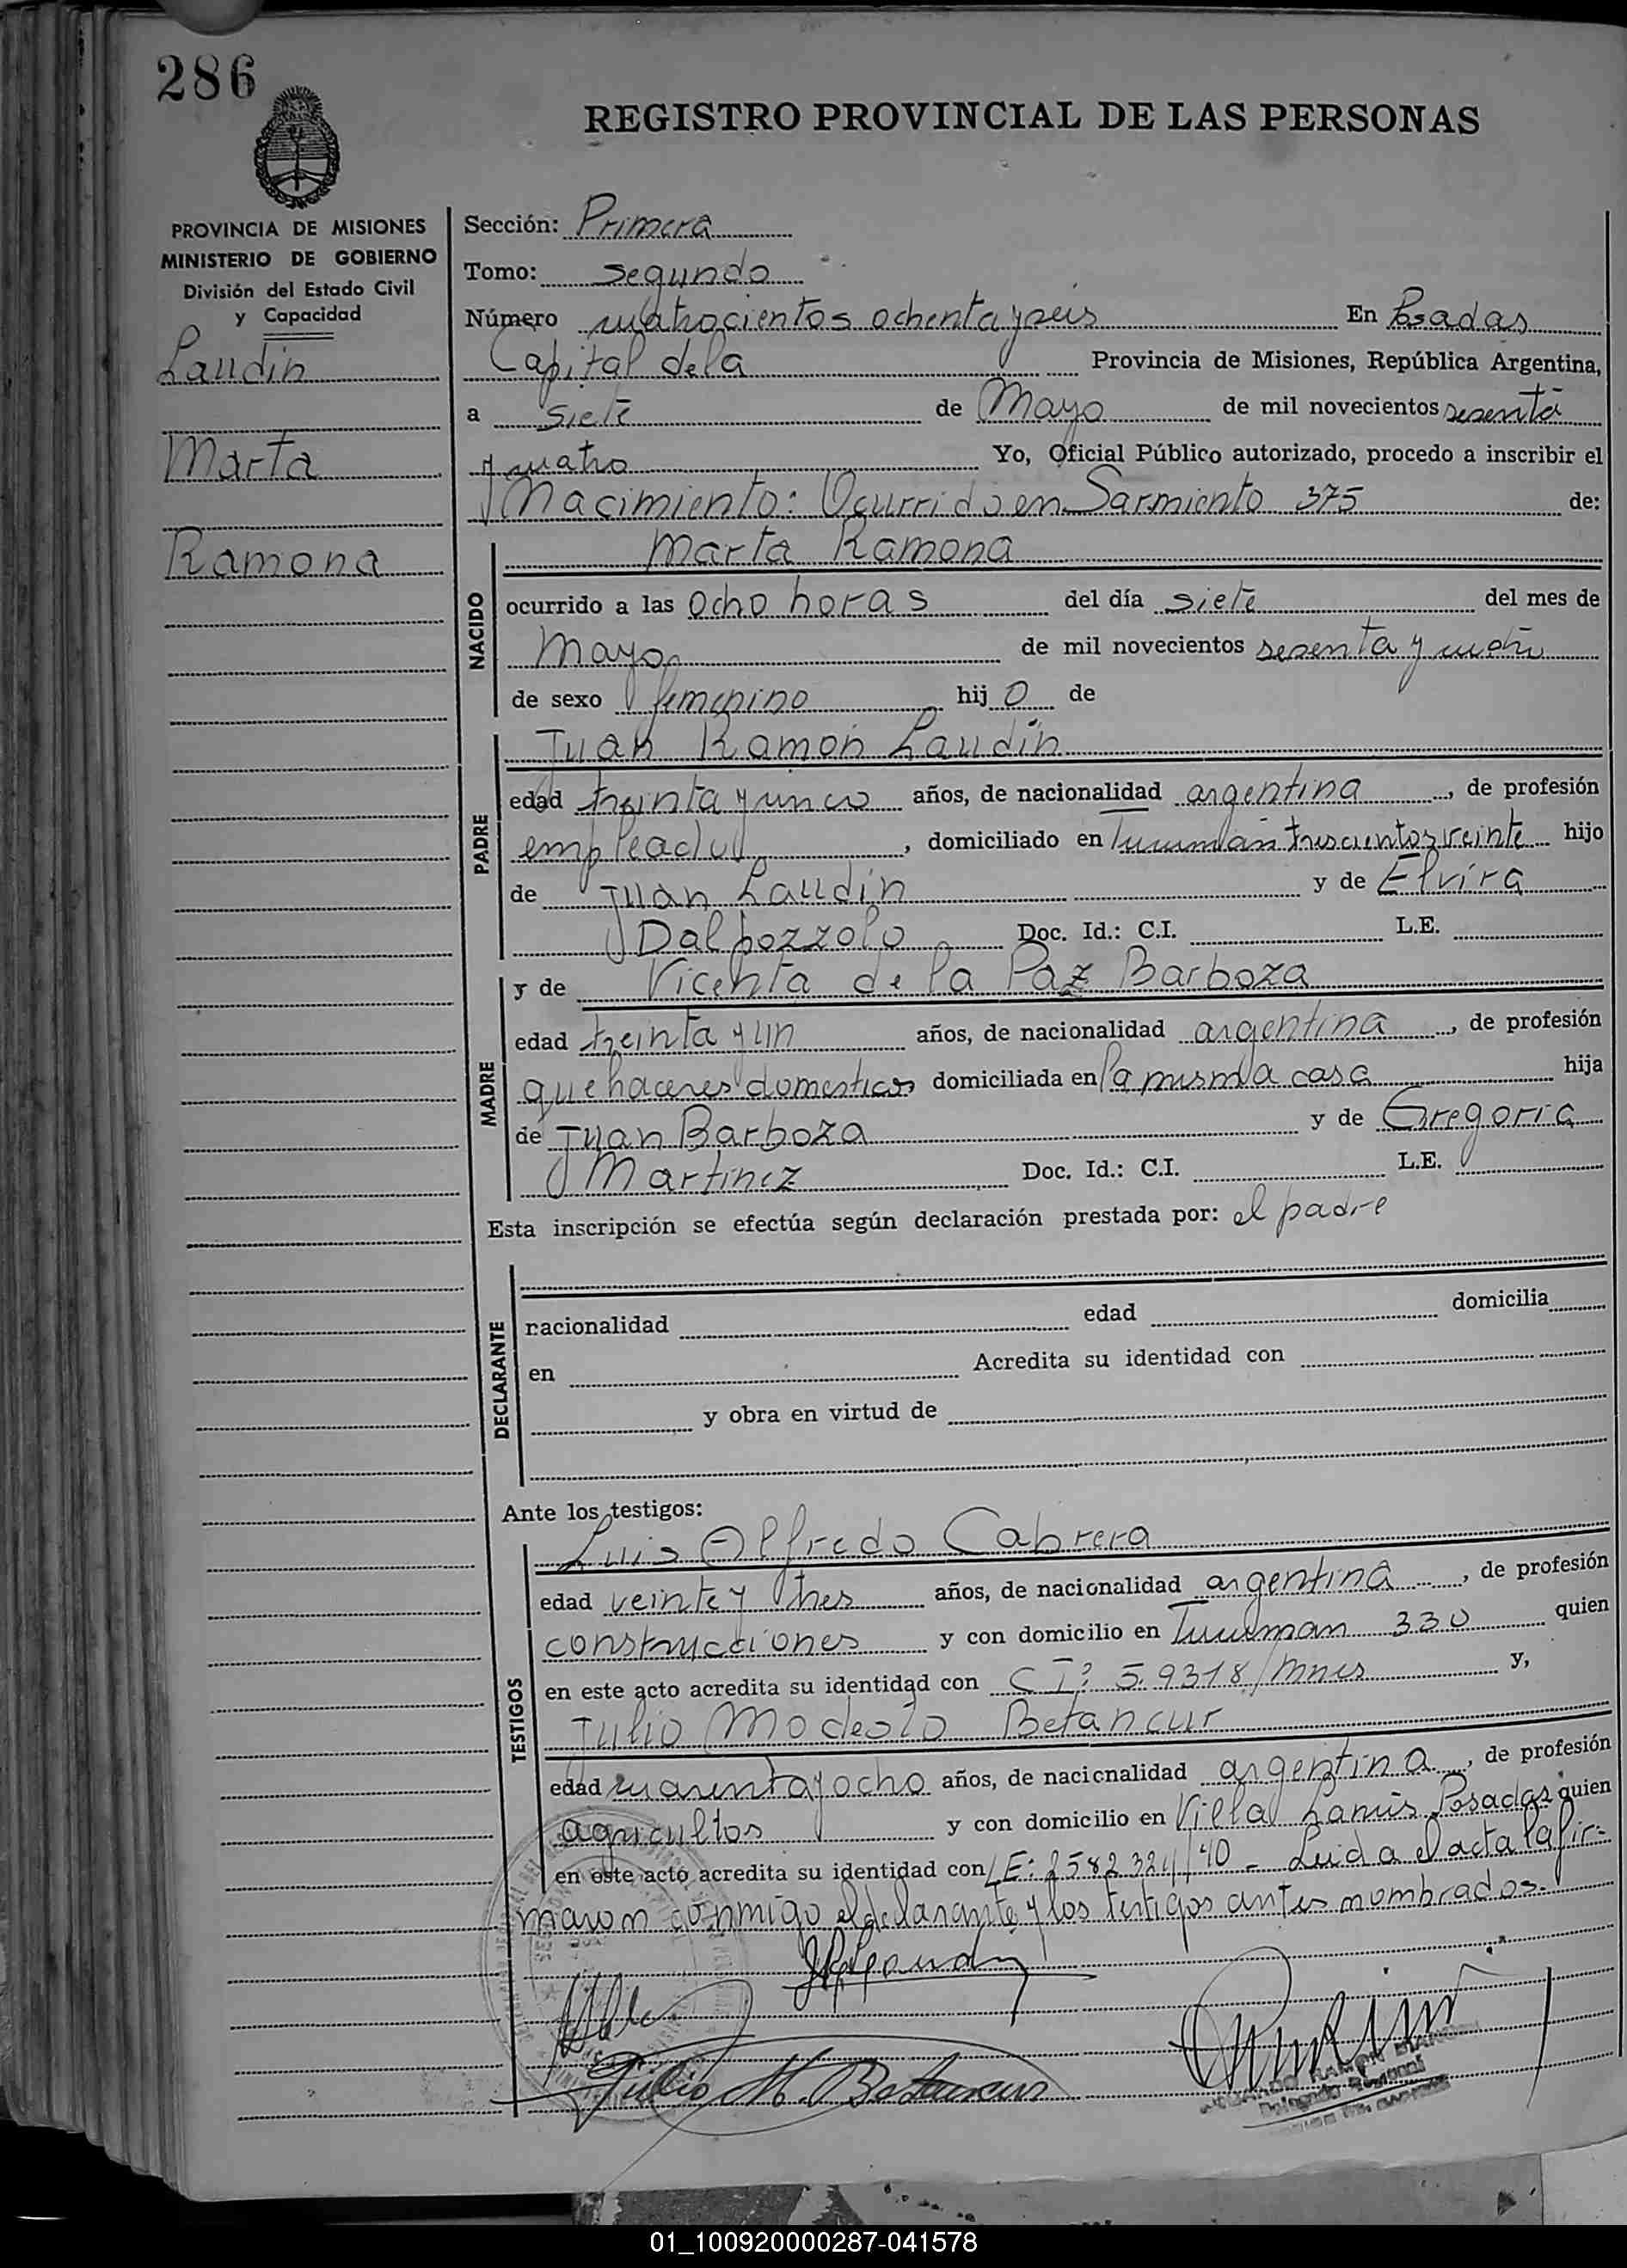 286
REGISTRO PROVINCIAL DE LAS PERSONAS
PROVINCIA DE MISIONES
MINISTERIO DE GOBIERNO
División del Estado Civil
y Capacidad
Laudin
Marta
Ramona
Sección: Primera
Tomo: segundo
Número cuatrocientos ochenta y seis En Posadas
Capital de la Provincia de Misiones, República Argentina,
a siete de Mayo de mil novecientos sesenta
y cuatro Yo, Oficial Público autorizado, procedo a inscribir el
Nacimiento: Ocurrido en Sarmiento 375 de:
NACIDO
Marta Ramona
ocurrido a las ocho horas del día siete del mes de
Mayo de mil novecientos sesenta y cuatro
de sexo femenino hij o de
PADRE
Juan Ramón Laudin
edad treinta y cinco años, de nacionalidad argentina, de profesión
empleado, domiciliado en Tucumán trescientos veinte hijo
de Juan Laudin y de Elvira
Dalpozzolo Doc. Id.: C.I. L.E.
MADRE
y de Vicenta de la Paz Barboza
edad treinta y un años, de nacionalidad argentina, de profesión
quehaceres domesticos domiciliada en la misma casa hija
de Juan Barboza y de Gregoria
Martinez Doc. Id.: C.I. L.E.
Esta inscripción se efectúa según declaración prestada por: el padre
DECLARANTE
nacionalidad edad domicilia
en Acredita su identidad con
y obra en virtud de
Ante los testigos:
TESTIGOS
Luis Alfredo Cabrera
edad veinte y tres años, de nacionalidad argentina, de profesión
construcciones y con domicilio en Tucuman 330 quien
en este acto acredita su identidad con C I: 5.9318/mnes y,
Julio Modesto Betancur
edad cuarenta y ocho años, de nacionalidad argentina, de profesión
agricultor y con domicilio en Villa Lanús Posadas quien
en este acto acredita su identidad con L E: - Leida el acta la fir-
maron conmigo el declarante y los testigos antes nombrados.
Julio M. Betancur
RAMON
Delegado
01_100920000287-041578